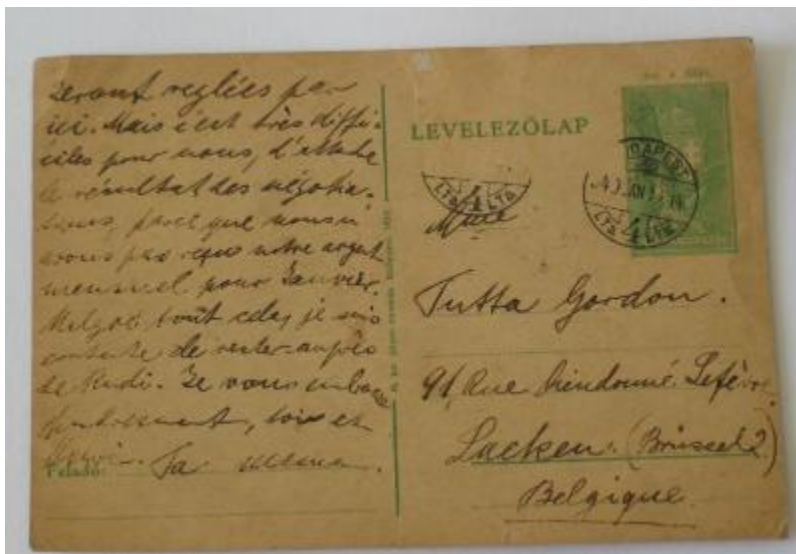 seront reglées par
ici. Mais c'est très diffi-
ciles pour nous, d'attendre
le résultat des négotia-
tions, parce que nous n'
avons pas reçu notre argent
mensuel pour Janvier.
Malgré tout cela, je suis
contente de rester auprès
de Rudi. Je vous embrasse
tendrement, toi et
Feladó: Ta mema.
LEVELEZŐLAP
BUDAPEST
4
LTÁ LTÁ
4
LTÁ LTÁ
Tutta Gordon.
91, Rue Dieudonné Lefèvre
Laeken. (Brüssel 2)
Belgique